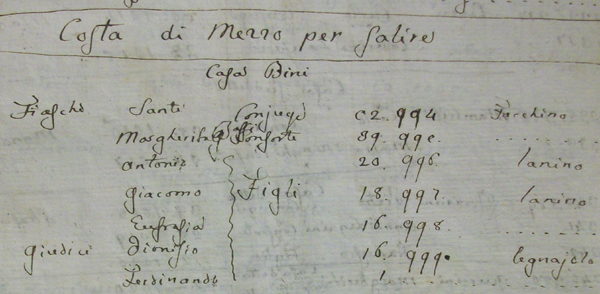 Costa di Mezzo per Salire
Casa Bini
Fiaschi Santi Conjuge 62. 994 Facchino
Margherita Consorte 59. 995. . . . . . .
Antonio 20. 996 lanino
Giacomo Figli 18. 997 lanino
Eufrasia 16. 998. . . . . . .
Giudici Dionisio 16. 999. legnajolo
Ferdinando